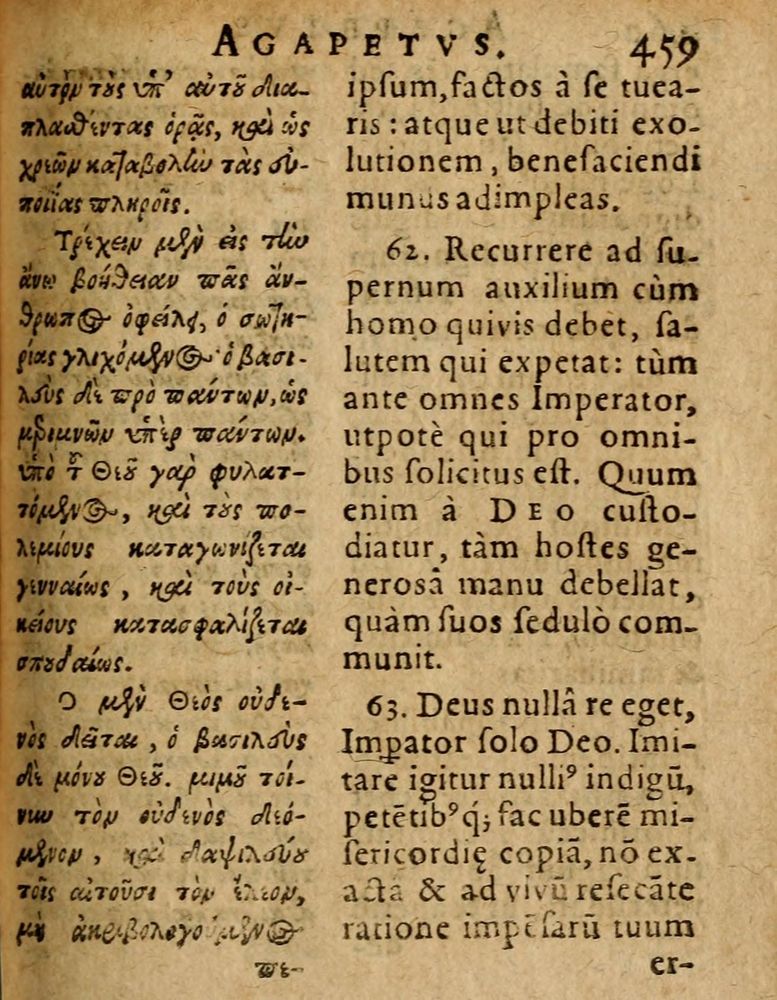 AGAPETVS. 459
αὐτὸν τοὺς ὑπ' αὐτοῦ δια-
πλασθέντας ὁρᾷς, καὶ ὡς
χρεῶν καταβολὴν τὰς εὐ-
ποιΐας πληροῖς.
Τρέχειν μὲν εἰς τὴν
ἄνω βοήθειαν πᾶς ἄν-
θρωπος ὀφείλει, ὁ σωτη-
ρίας γλιχόμενος· ὁ βασι-
λεὺς δὲ πρὸ πάντων, ὡς
μεριμνῶν ὑπὲρ πάντων.
ὑπὸ τοῦ Θεοῦ γὰρ φυλατ-
τόμενος, καὶ τοὺς πο-
λεμίους καταγωνίζεται
γενναίως, καὶ τοὺς οἰ-
κείους κατασφαλίζεται
σπουδαίως.
Ὁ μὲν Θεὸς οὐδε-
νὸς δεῖται, ὁ βασιλεὺς
δὲ μόνου Θεοῦ. μιμοῦ τοί-
νυν τὸν οὐδενὸς δεό-
μενον, καὶ δαψιλεύου
τοῖς αἰτοῦσι τὸν ἔλεον,
μὴ ἀκριβολογούμενος
πε-
ipsum, factos à se tuea-
ris: atque ut debiti exo-
lutionem, benefaciendi
munus adimpleas.
62. Recurrere ad su-
pernum auxilium cùm
homo quivis debet, sa-
lutem qui expetat: tùm
ante omnes Imperator,
utpotè qui pro omni-
bus solicitus est. Quum
enim à DEO custo-
diatur, tàm hostes ge-
nerosâ manu debellat,
quàm suos sedulò com-
munit.
63. Deus nullâ re eget,
Impator solo Deo. Imi-
tare igitur nulliꝰ indigū,
petētibꝰq́; fac uberē mi-
sericordię copiā, nō ex-
acta & ad vivū resecāte
ratione impēsarū tuum
er-